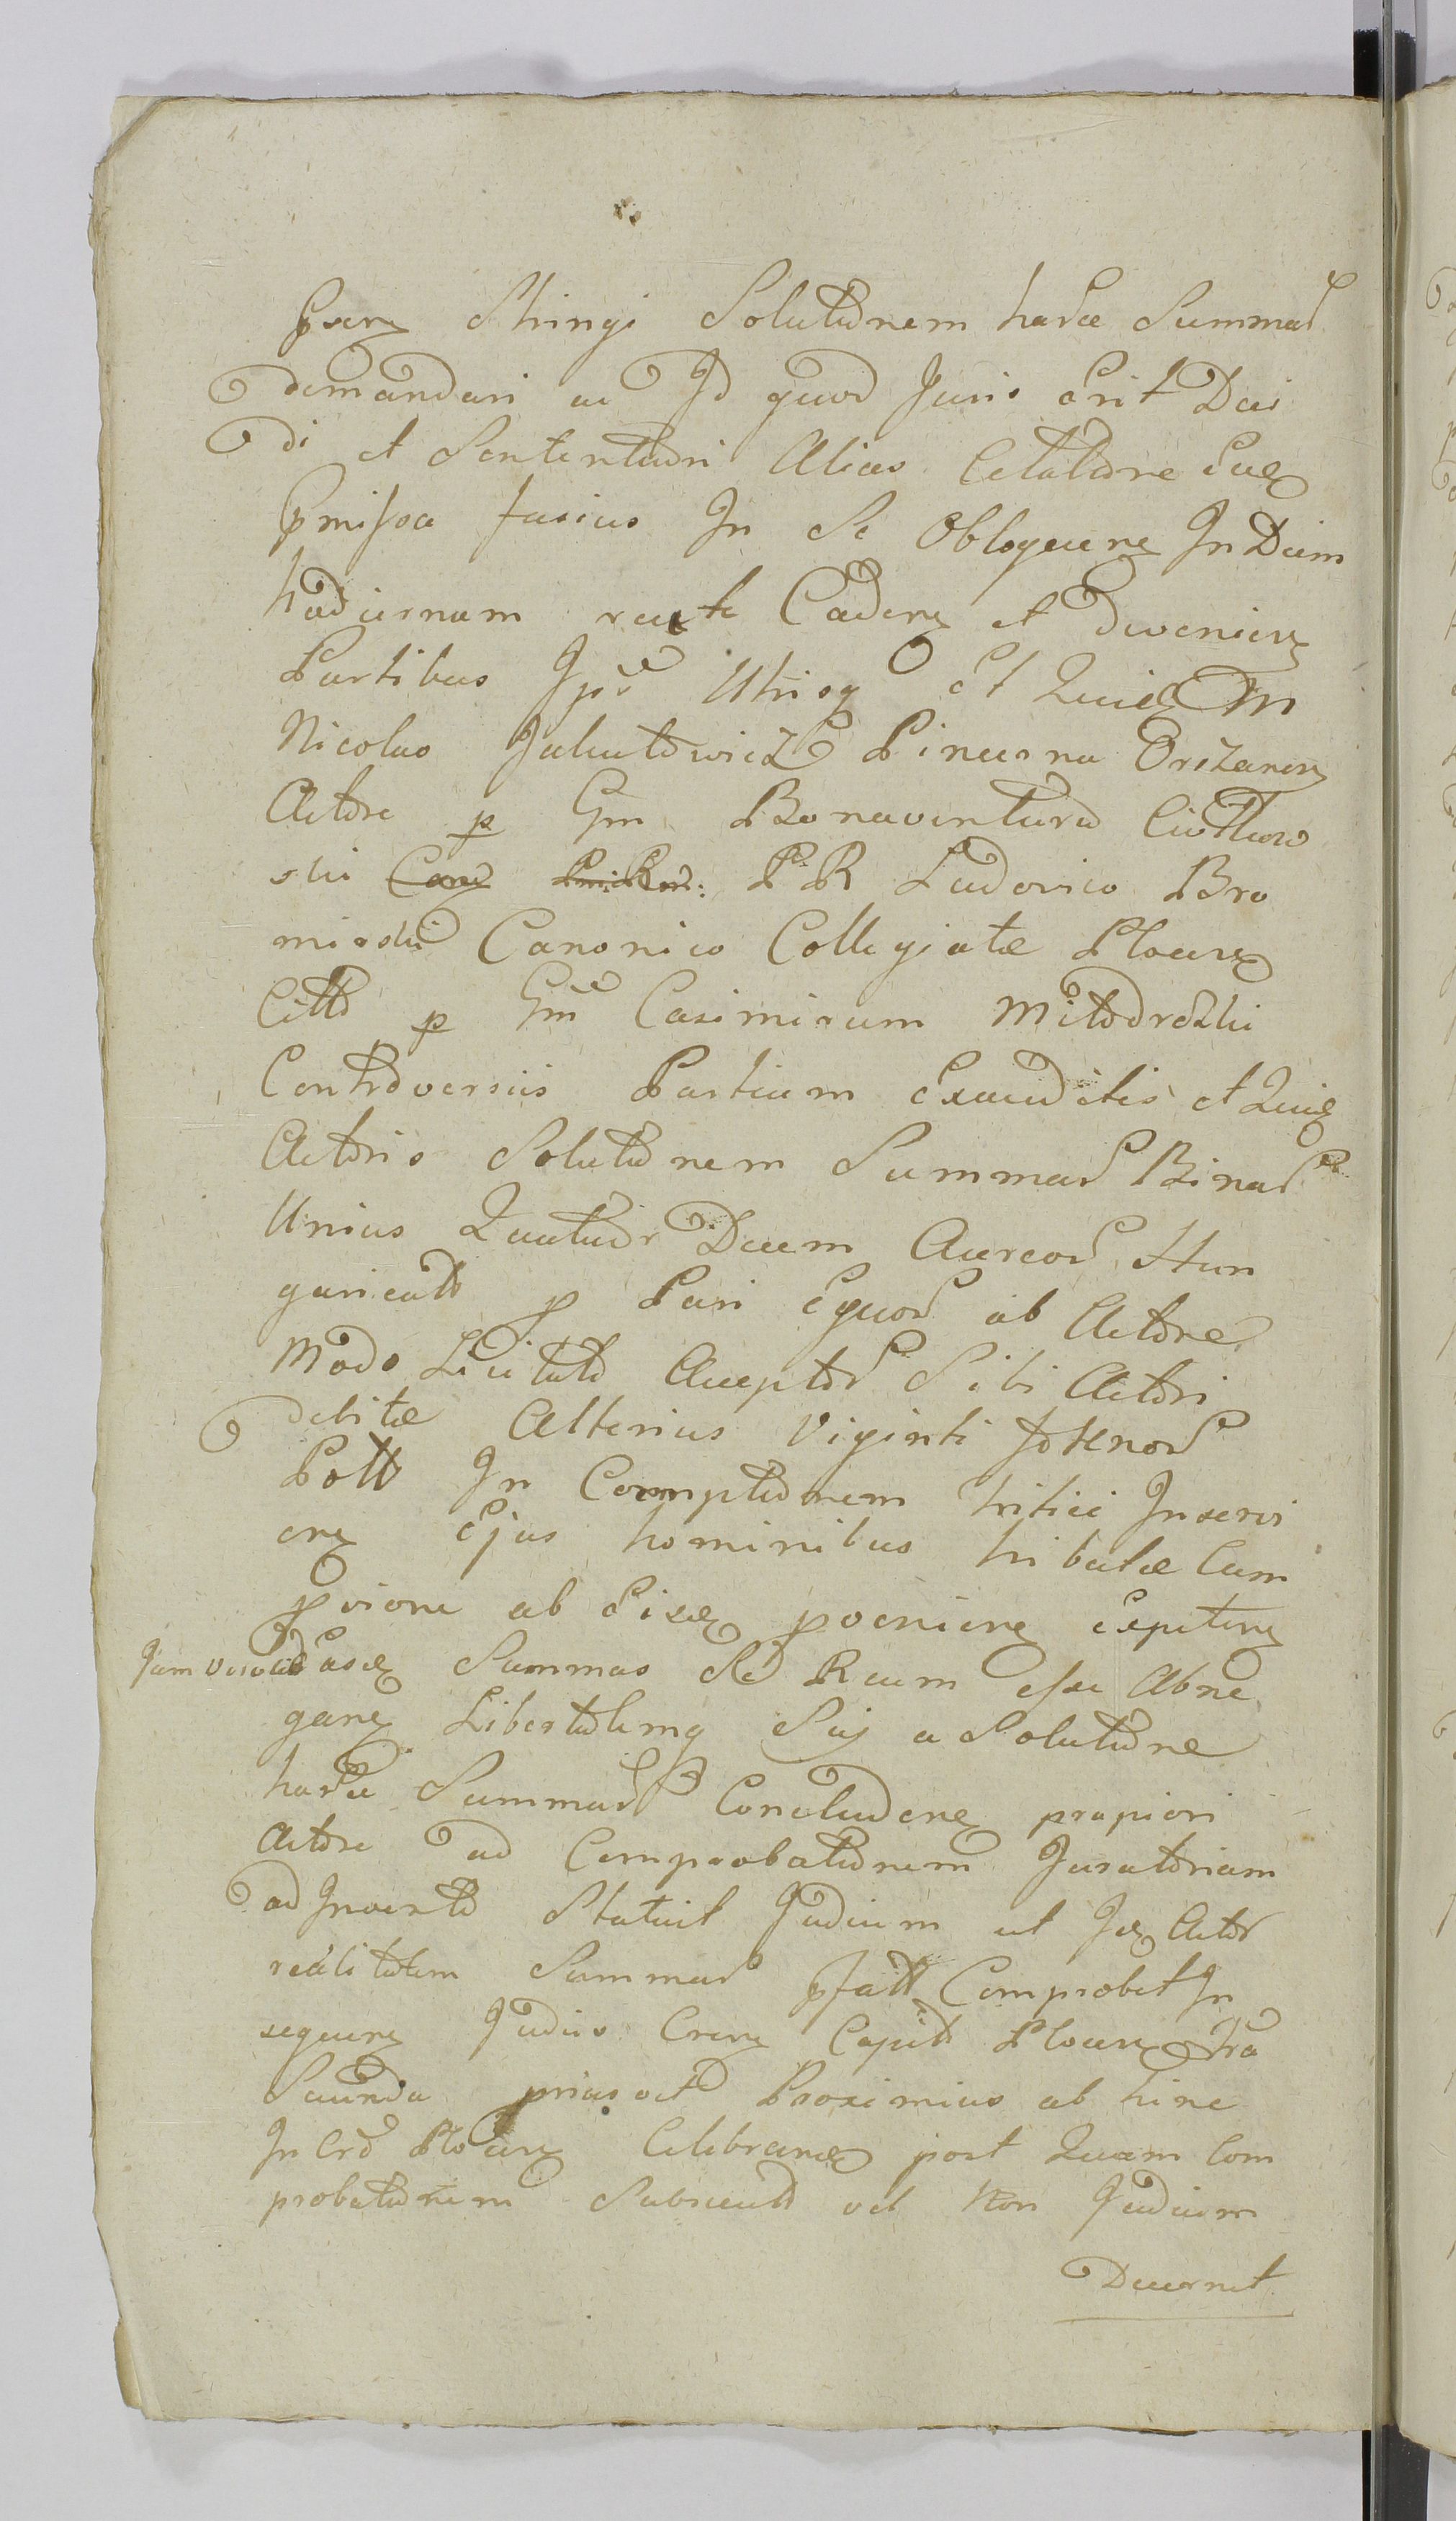 stringi Solutionem harce Summar
demandari ac Id quod Juris erit Dai
di et Sententiari Alias Citatione
pmissa fusius In Se Obloquen In Diem
hodiernam recte Caden et devenien
Partibus Ips Utrisq et Quid M
Nicolao Jakutowicz Pincerna Orszanen
Actore p Gm Bonaventura
ski P R Ludovico Bro
mirski Canonico Collegiatæ Plocen
Citto p Gm Casimirum
Controversiis Partium Exauditis et Quia
Actoris Solutionem Summar Binar
Unius Quatuor Decem Aureor Hun
garicall p Pari Equor ab Actore
Modo Licitato Acceptor Sibi Actori
debitæ Alterius Viginti fotenor
Poll In Comptionem tritici Inservi
en Ejus hominibus tributæ Cum
ab provenien expeten
Jam vero Citus easd Summas Se Reum esse Abne
gan Libertatemq Sui a Solutione
harce Summar Concluden propiori
Actore ad Comprobationem Juratoriam
adInvento Statuit Judicium ut Id Actor
realitatem Summar pfatt Comprobet In
sequen Judiis Cren Capit Plocen fra
Secunda prius vel Proximius ab hinc
In Crd Plocen Celebrand post Quam Com
probationem Subsecutt vel Non Judicium
Decernet